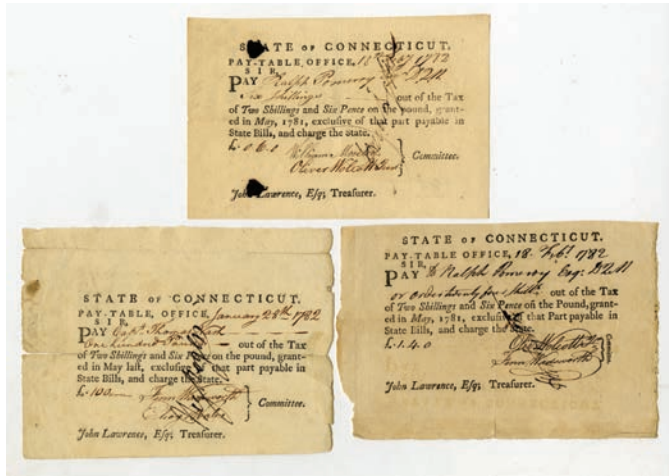 STATE OF CONNECTICUT.
PAY-TABLE, OFFICE, 18th Feby 1782
SIR,
PAY Ralph Pomeroy Esqr DQM
Six shillings out of the Tax
of Two Shillings and Six Pence on the pound, grant-
ed in May, 1781, exclusive of that part payable in
State Bills, and charge the State.
£. 0. 6. 0 William Moseley
Oliver Wolcott Junr
Committee.
John Lawrence, Esq; Treasurer.
STATE OF CONNECTICUT.
PAY-TABLE, OFFICE, January 28th 1782
SIR,
PAY Capt. Thomas
One hundred out of the Tax
of Two Shillings and Six Pence on the pound, grant-
ed in May last, exclusive of that part payable in
State Bills, and charge the State.
£. 100 Fenn Wadsworth
Committee.
John Lawrence, Esq; Treasurer.
STATE OF CONNECTICUT.
PAY-TABLE OFFICE, 18 Feby 1782
SIR,
PAY Ralph Pomeroy Esqr DQM
or order twenty four Shills out of the Tax
of Two Shillings and Six Pence on the Pound, grant-
ed in May, 1781, exclusive of that Part payable in
State Bills, and charge the State.
£. 1. 4. 0 Wolcott Jr
Fenn Wadsworth
Committee.
John Lawrence, Esq; Treasurer.